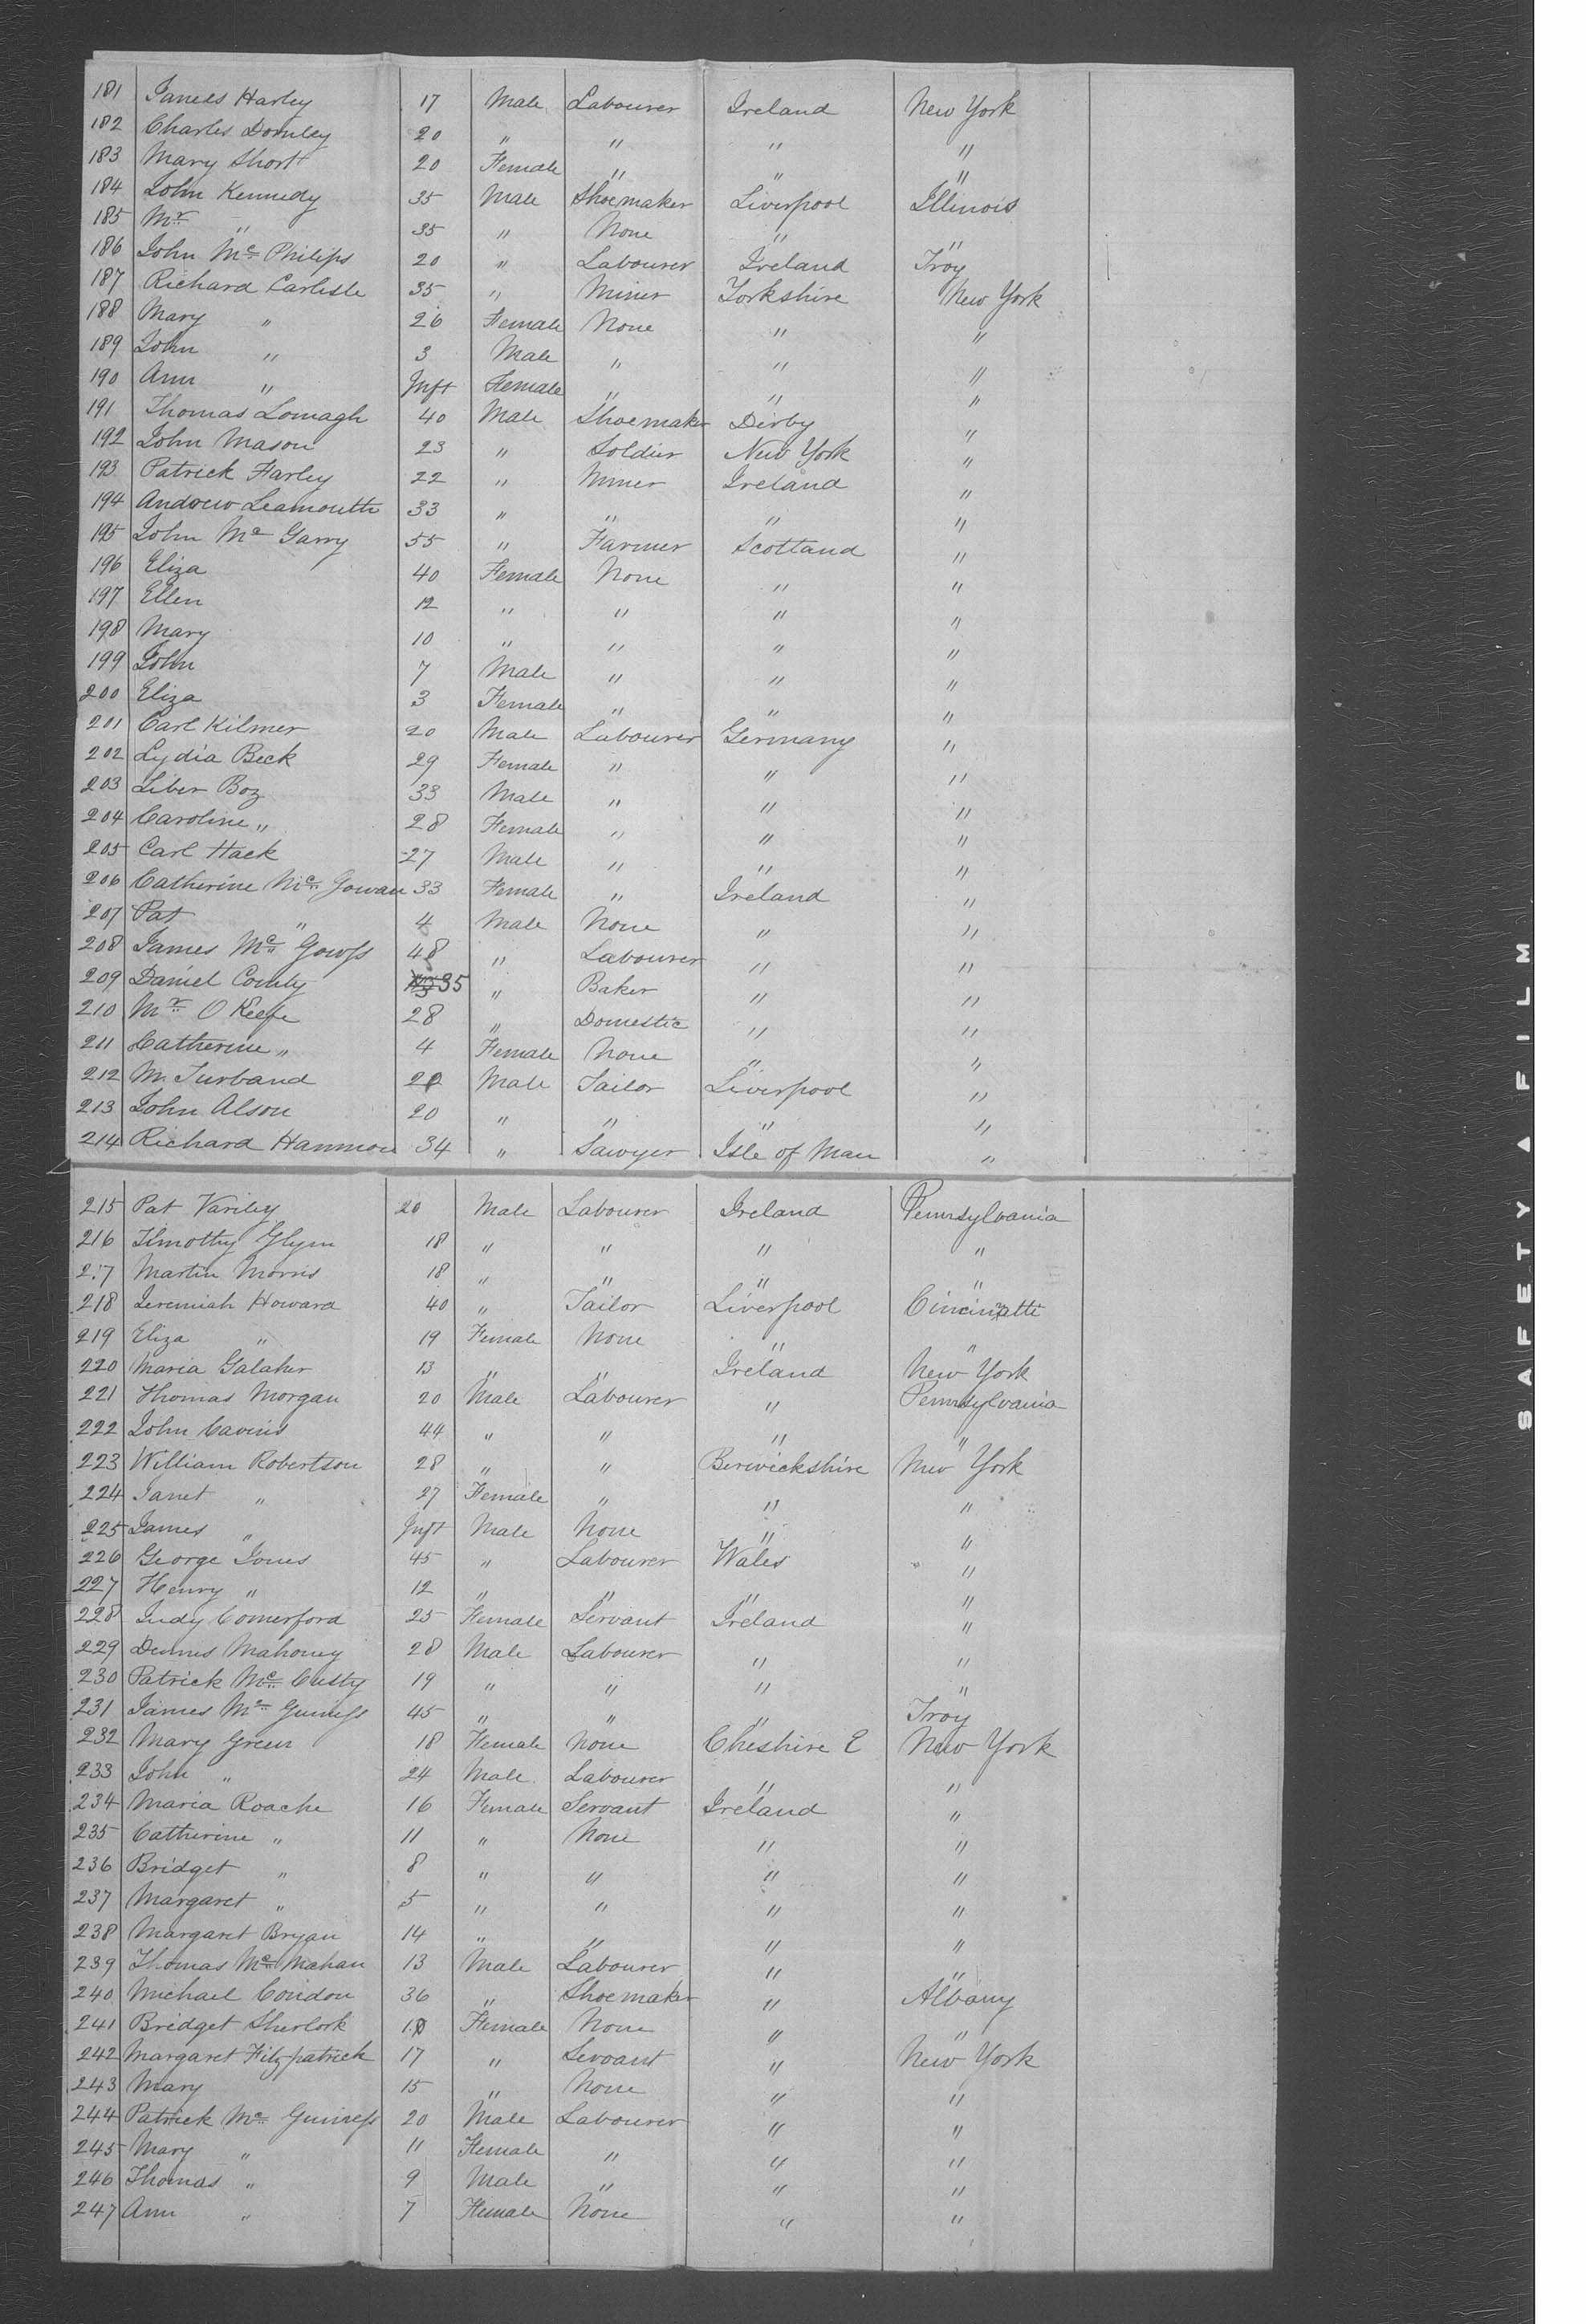 181 James Harley 17 Male Labourer Ireland New York
182 Charles Dornley 20 " " " "
183 Mary Short 20 Female " " "
184 John Kennedy 35 Male Shoemaker Liverpool Illinois
185 Mr " 35 " None " "
186 John Mc Philips 20 " Labourer Ireland Troy
187 Richard Carlisle 35 " Miner Yorkshire New York
188 Mary " 26 Female None " "
189 John " 3 Male " " "
190 Ann " Inft Female " " "
191 Thomas Lomagh 40 Male Shoemaker Dirby "
192 John Mason 23 " Soldier New York "
193 Patrick Farley 22 " Miner Ireland "
194 Andrew Leamoutte 33 " " " "
195 John Mc Garry 55 " Farmer Scotland "
196 Eliza 40 Female None " "
197 Ellen 12 " " " "
198 Mary 10 " " " "
199 John 7 Male " " "
200 Eliza 3 Female " " "
201 Carl Kilmer 20 Male Labourer Germany "
202 Lydia Beck 29 Female " " "
203 Liber Boz 33 Male " " "
204 Caroline " 28 Female " " "
205 Carl Hack 27 Male " " "
206 Catherine Mc Gowan 33 Female " Ireland "
207 Pat " 4 Male None " "
208 James Mc Gowss 48 " Labourer " "
209 Daniel 35 " Baker " "
210 Mr O Keefe 28 " Domestic " "
211 Catherine " 4 Female None " "
212 M. Turband 22 Male Tailor Liverpool "
213 John Alson 20 " " " "
214 Richard Hanmon 34 " Sawyer Isle of Man "
215 Pat Variley 20 Male Labourer Ireland Pennsylvania
216 Timothy Glynn 18 " " " "
217 Martin Morris 18 " " " "
218 Jeremiah Howard 40 " Tailor Liverpool Cincinatti
219 Eliza " 19 Female None " "
220 Maria Galaher 13 " " Ireland New York
221 Thomas Morgan 20 Male Labourer " Pennsylvania
222 John Cavins 44 " " " "
223 William Robertson 28 " " Berwickshire New York
224 Janet " 27 Female " " "
225 James " Inft Male None " "
226 George Jones 45 " Labourer Wales "
227 Henry " 12 " " " "
228 Judy Comerford 25 Female Servant Ireland "
229 Dennis Mahoney 28 Male Labourer " "
230 Patrick Mc Custy 19 " " " "
231 James Mc Guiness 45 " " " Troy
232 Mary Green 18 Female None Cheshire E New York
233 John " 24 Male Labourer " "
234 Maria Roache 16 Female Servant Ireland "
235 Catherine " 11 " None " "
236 Bridget " 8 " " " "
237 Margaret " 5 " " " "
238 Margaret Bryan 14 " " " "
239 Thomas Mc Mahan 13 Male Labourer " "
240 Michael Condon 36 " Shoemaker " Albany
241 Bridget Sherlock 10 Female None " "
242 Margaret Fitzpatrick 17 " Servant " New York
243 Mary 15 " None " "
244 Patrick Mc Guiness 20 Male Labourer " "
245 Mary " 11 Female " " "
246 Thomas " 9 Male " " "
247 Ann " 7 Female None " "
SAFETY A FILM